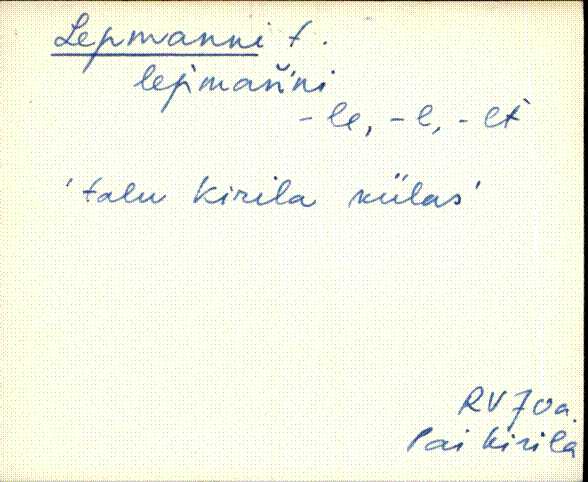 Lepmanni t.
lepmańni
-le, -l, -lt
'talu Kirila külas'
RV 70a.
Pai Kirila